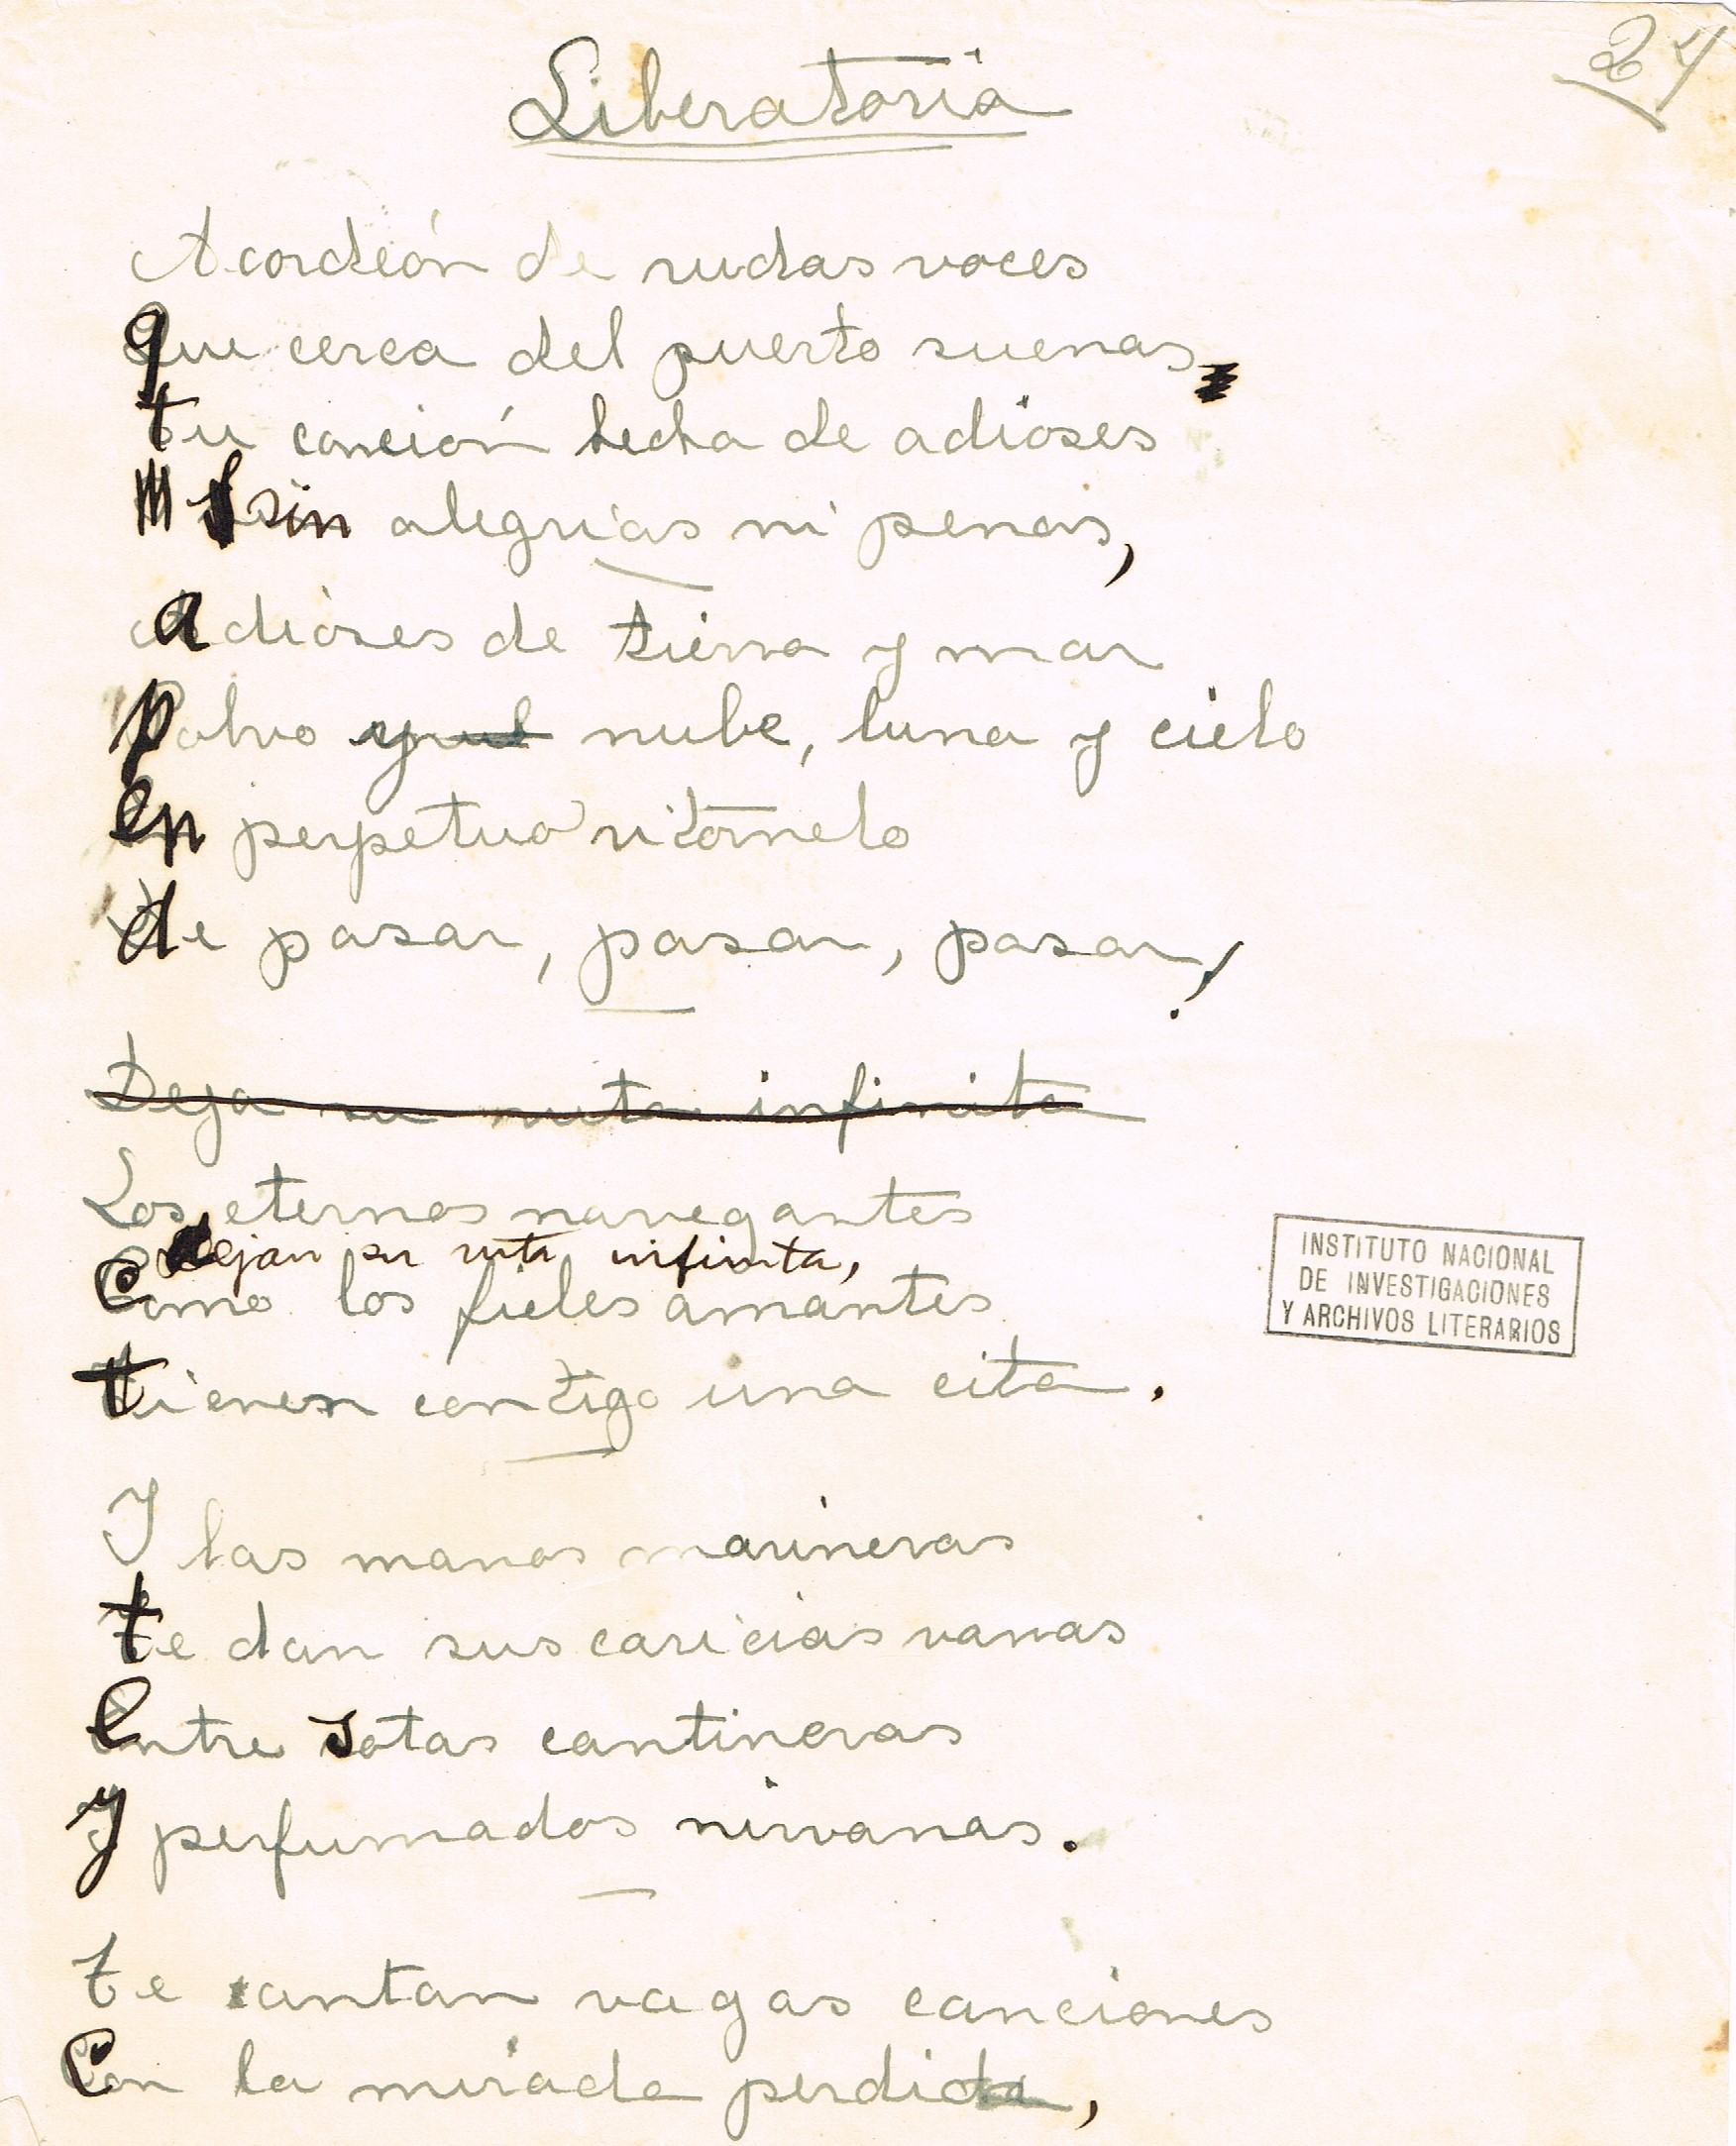 24
Liberatoria
Acordeón de rudas voces
que cerca del puerto suenas
tu canción hecha de adioses
sin alegrías ni penas,
adioses de tierra y mar
polvo nube, luna y cielo
en perpetuo ritornelo
de pasar, pasar, pasar!
Deja su ruta infinita
Los eternos navegantes
dejan su ruta infinita,
como los fieles amantes
tienen contigo una cita.
Y las manos marineras
te dan sus caricias vanas
entre sotas cantineras
y perfumados nirvanas.
Te cantan vagas canciones
con la mirada perdida,
INSTITUTO NACIONAL
DE INVESTIGACIONES
Y ARCHIVOS LITERARIOS